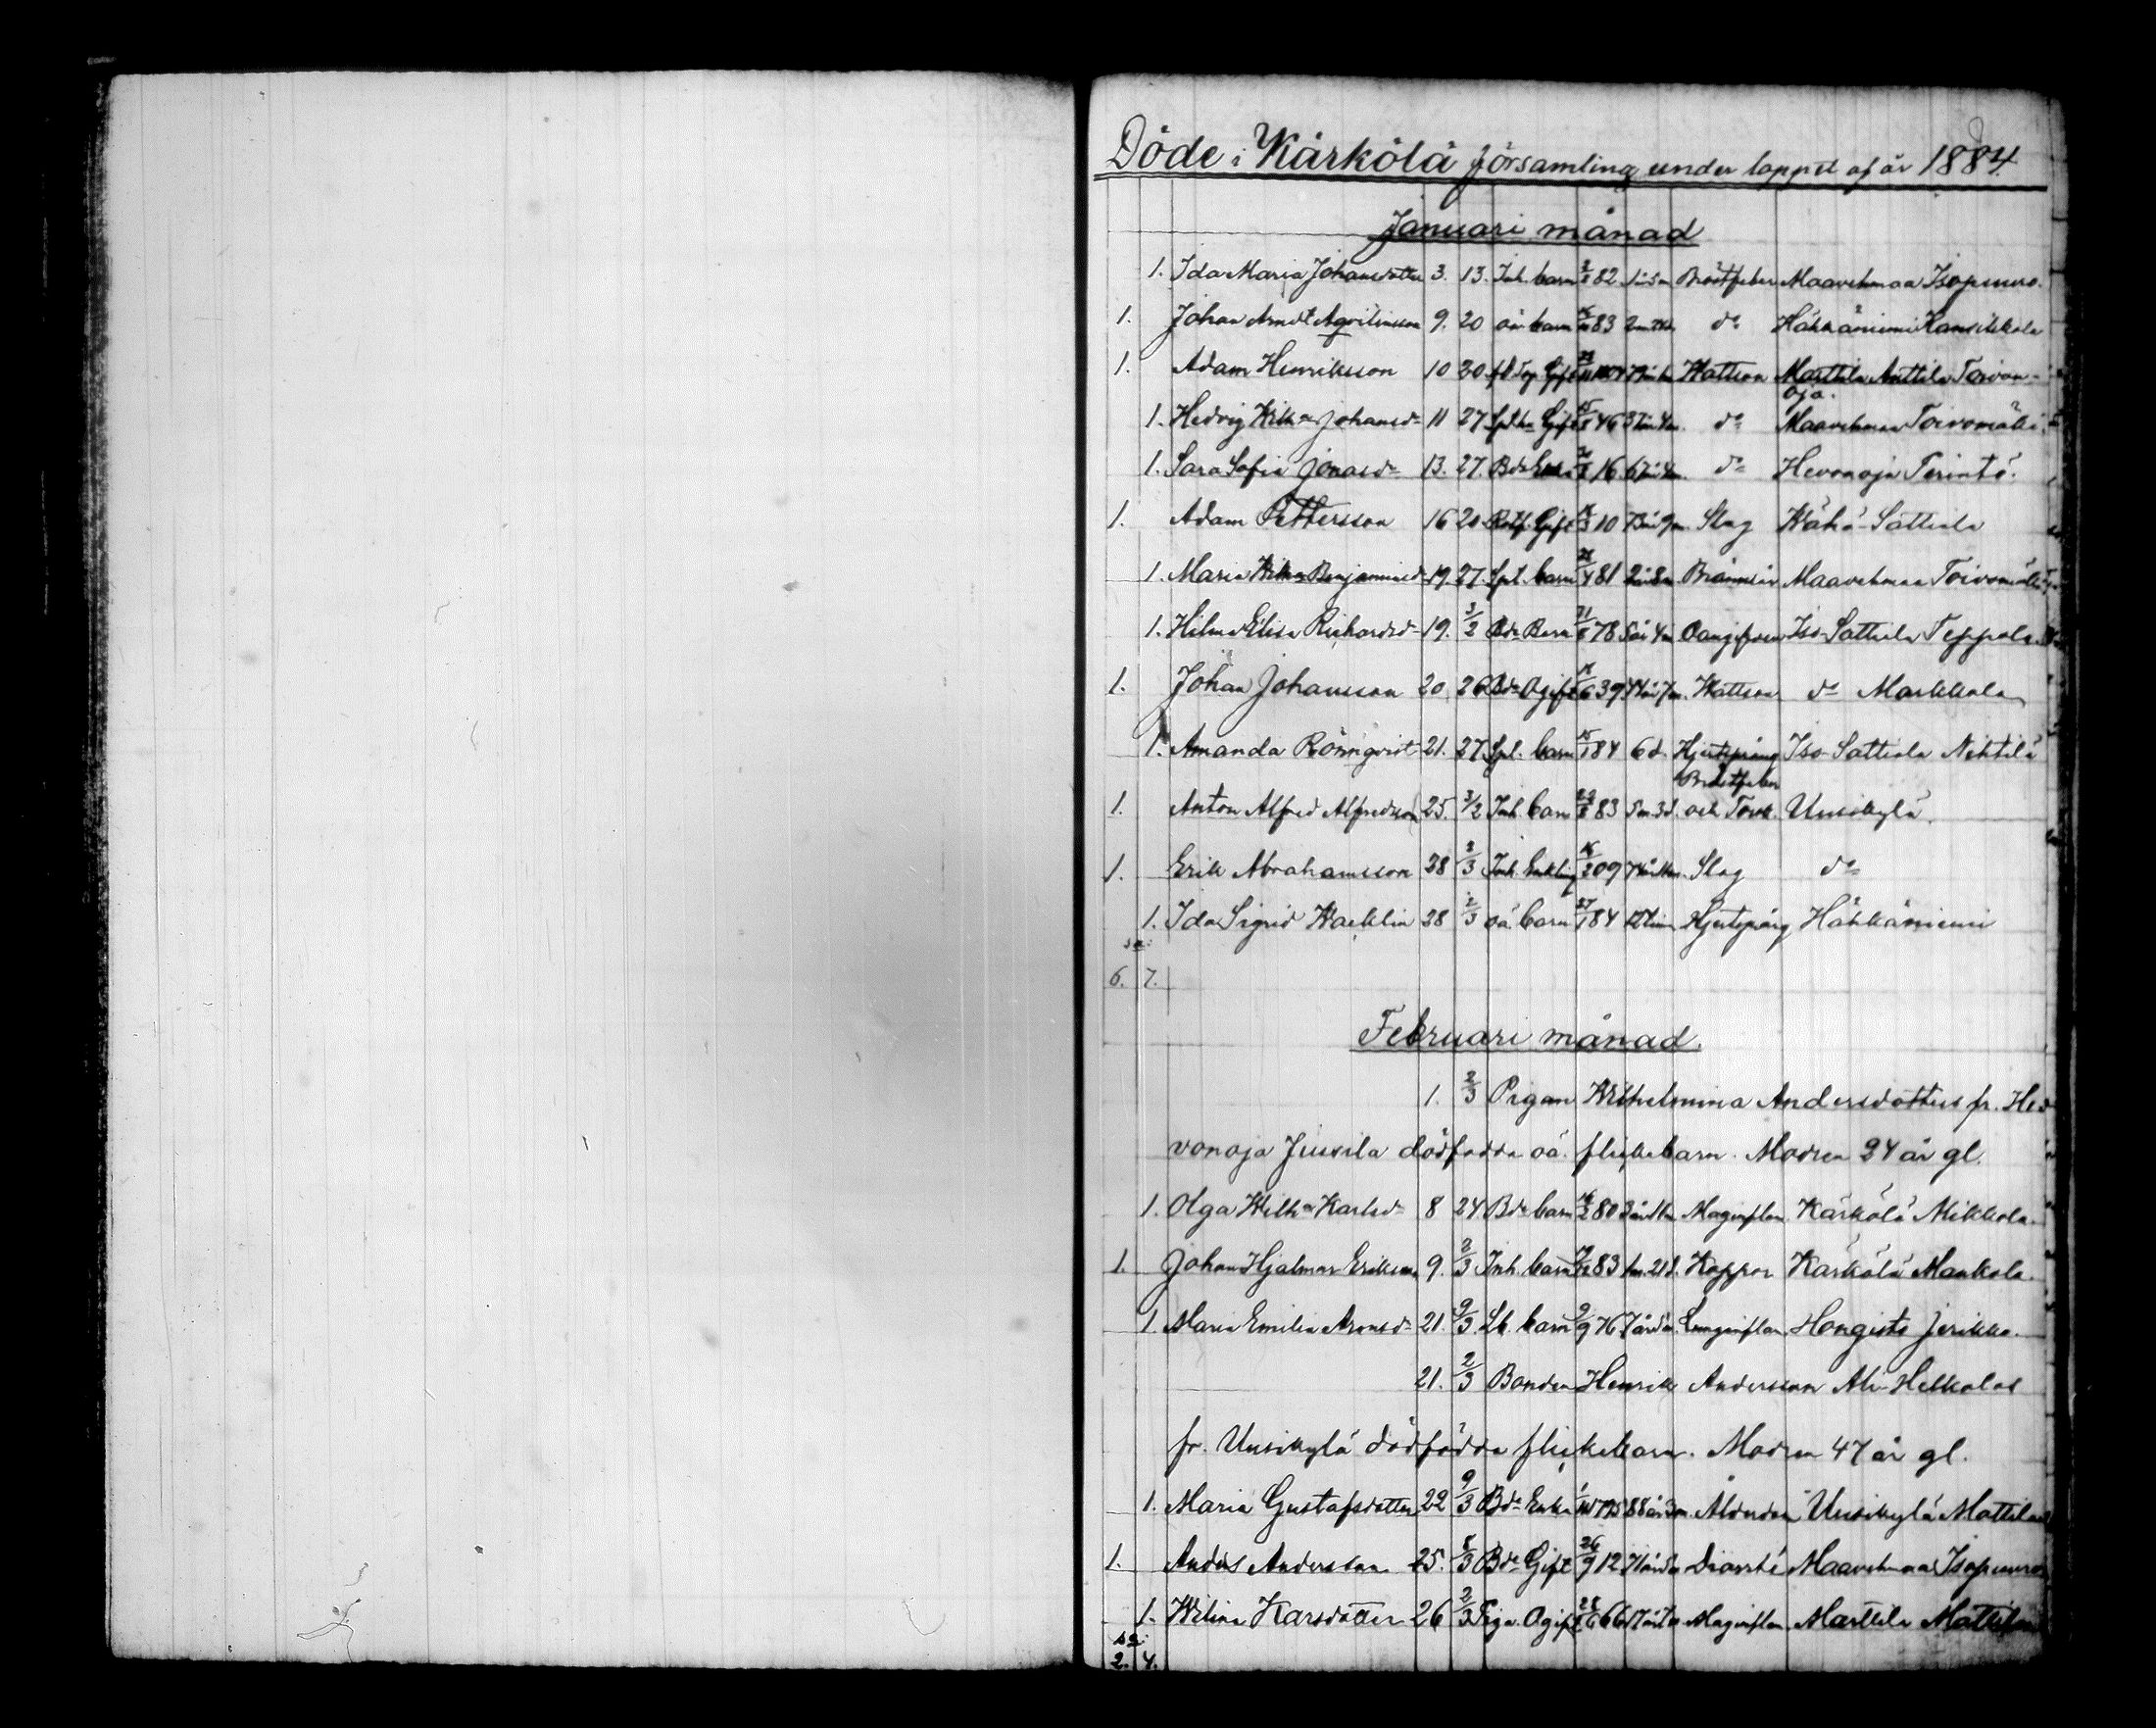 Döde i Kärkölä församling under loppet af år 1884.
Januari månad
1. Ida Maria Johansdotter 3. 13. Inh. barn 2/8 82 Bröstfeber Maavehmaa Isopuuro.
1. Johan Arndt Agvilinsson 9. 20 oä. barn 83 d:o Hähkäniemi Hansikkala
1. Adam Henriksson 10 20 Gift Wattson Marttila Anttila Toivon-
oja.
1. Hedvig Wilh:a Johansd:r 11 27 Gift 46 37 år 4 m. d:o Maavehmaa Toivomäki
1. Sara Sofia Jonasd:r 13. 27. B:de Enka 16. 67 år 4 m. d:o Hevonoja Terintö.
1. Adam Pettersson 16 20 Gift 10 73 år 9 m. Slag Wähä-Sattiala
1. Maria Wilh:a Benjaminsd:r 19. 27. Spl. barn 28/4 81 2 år 8 m Brännsår Maavehmaa Toivomäki
1. Hilma Elisa Richardsd:r 19. 3/2 B:de Barn 21/8 78 5 år 4 m Oangifven Iso-Sattiala Teppola
1. Johan Johansson 20. 26 B:de Ogift 6 39 44 år 7 m. Wattson d:o Markkola
1. Amanda Rönnqvist 21. 27. Spl. barn 15/1 84 6 d. Hjertspång Iso-Sattiala Nehtilä
Bröstfeber
1. Anton Alfred Alfredsson 25. 3/2 Inh. barn 22/8 83 5 m. 3 d. och Torsk. Uusikylä.
1. Erik Abrahamsson 28 2/3 Inh. Enkling 16/2 09 Slag d:o
1. Ida Sigrid Wacklin 28 2/3 oä. barn 27/1 84 12 tim Hjertspång Hähkäniemi
s:a
6. 7.
Februari månad.
1. 2/3 Pigan Wilhelmina Andersdotters fr. He-
vonoja Jussila dödfödda oä. flickebarn. Modren 24 år gl.
1. Olga Wilh:a Karlsd:r 8 24 B:de barn 16/2 80 3 år 11 m Maginflam. Kärkölä Mikkola.
1. Johan Hjalmar Eriksson 9. 2/3 Inh. barn 19/12 83 1 m. 21 d. Koppor Kärkölä Mankola.
1. Maria Emilia Aronsd:r 21. 9/3 Lb. barn 9/9 76 7 år 5 m. Lunginflam. Hongisto Jerikko.
21. 2/3 Bonden Henrik Andersson Ali-Heikkolas
fr. Uusikylä dödfödda flickebarn. Modren 47 år gl.
1. Maria Gustafsdotter 22 9/3 B:de Enka 1795 88 år 3 m. Ålderdom Uusikylä Mattila
1. Anders Andersson 25. 8/3 B:de Gift 26/9 12 71 år 5 m Diarrhé Maavehmaa Isopuuro
1. Wilina Karsdotter 26 2/3 Piga. Ogift 28/6 66 17 år 7 m Maginflam. Marttila Mattila
s:a
2. 4.